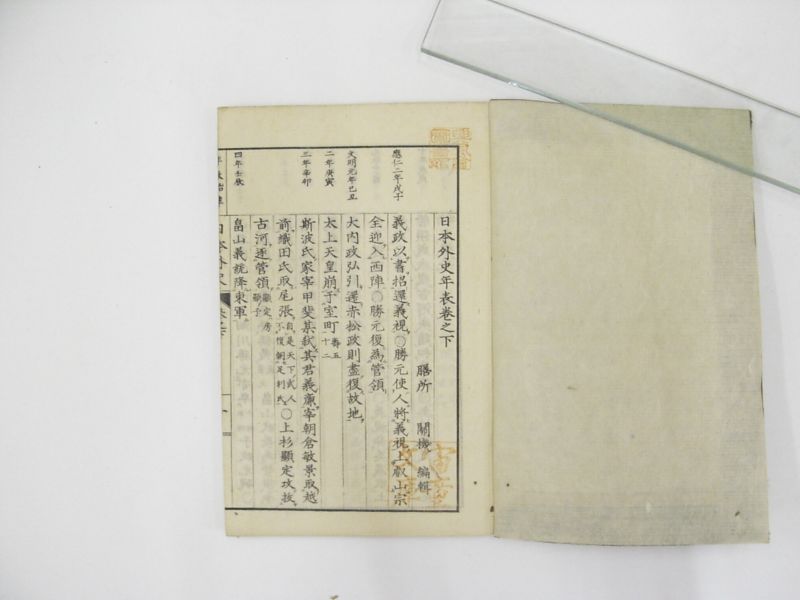 日本外史年表卷之下
膳所 關機 編輯
應仁二年戊子
義政以書招還義視○勝元使人將義視上叡山宗
全迎入西陣○勝元復為管領
文明元年己丑
大内政弘引還赤松政則盡復故地
二年庚寅
太上天皇崩于室町壽五十二
三年辛卯
斯波氏家宰甲斐某弑其君義廉宰朝倉敏景取越
前織田氏取尾張自是天下武人不復朝足利氏○上杉顯定攻拔
古河逐管領顯定房顯子
四年壬辰
畠山義就降東軍
日本外史